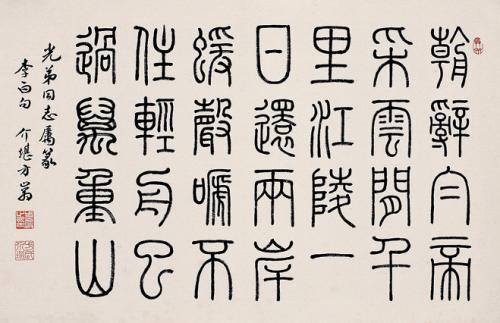 朝辭白帝
采雲間千
里江陵一
日還兩岸
蝯聲嗁不
住輕舟已
過萬重山
光弟同志屬篆
李白句 介堪方岩